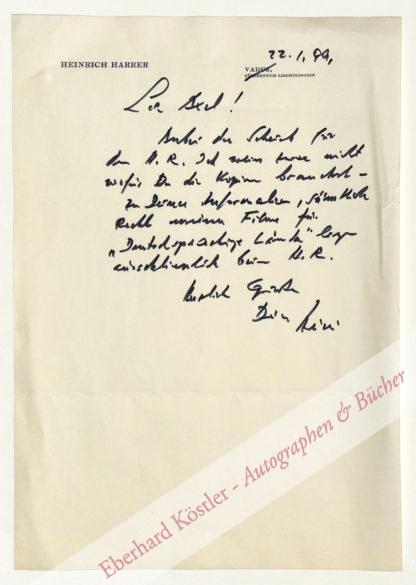 HEINRICH HARRER
22.1.89,
VADUZ,
FÜRSTENTUM LIECHTENSTEIN
Lie Axel!
Anbei der Scheck für
den H.R. Ich weiss zwar nicht
wofür Du die Kopien brauchst -
zu Deiner Information, sämtliche
Rechte meiner Filme für
„Deutschsprachige Länder" liegen
ausschliesslich beim H.R.
Herzlich Grüsse
Dein Heini
Eberhard Köstler - Autographen & Bücher